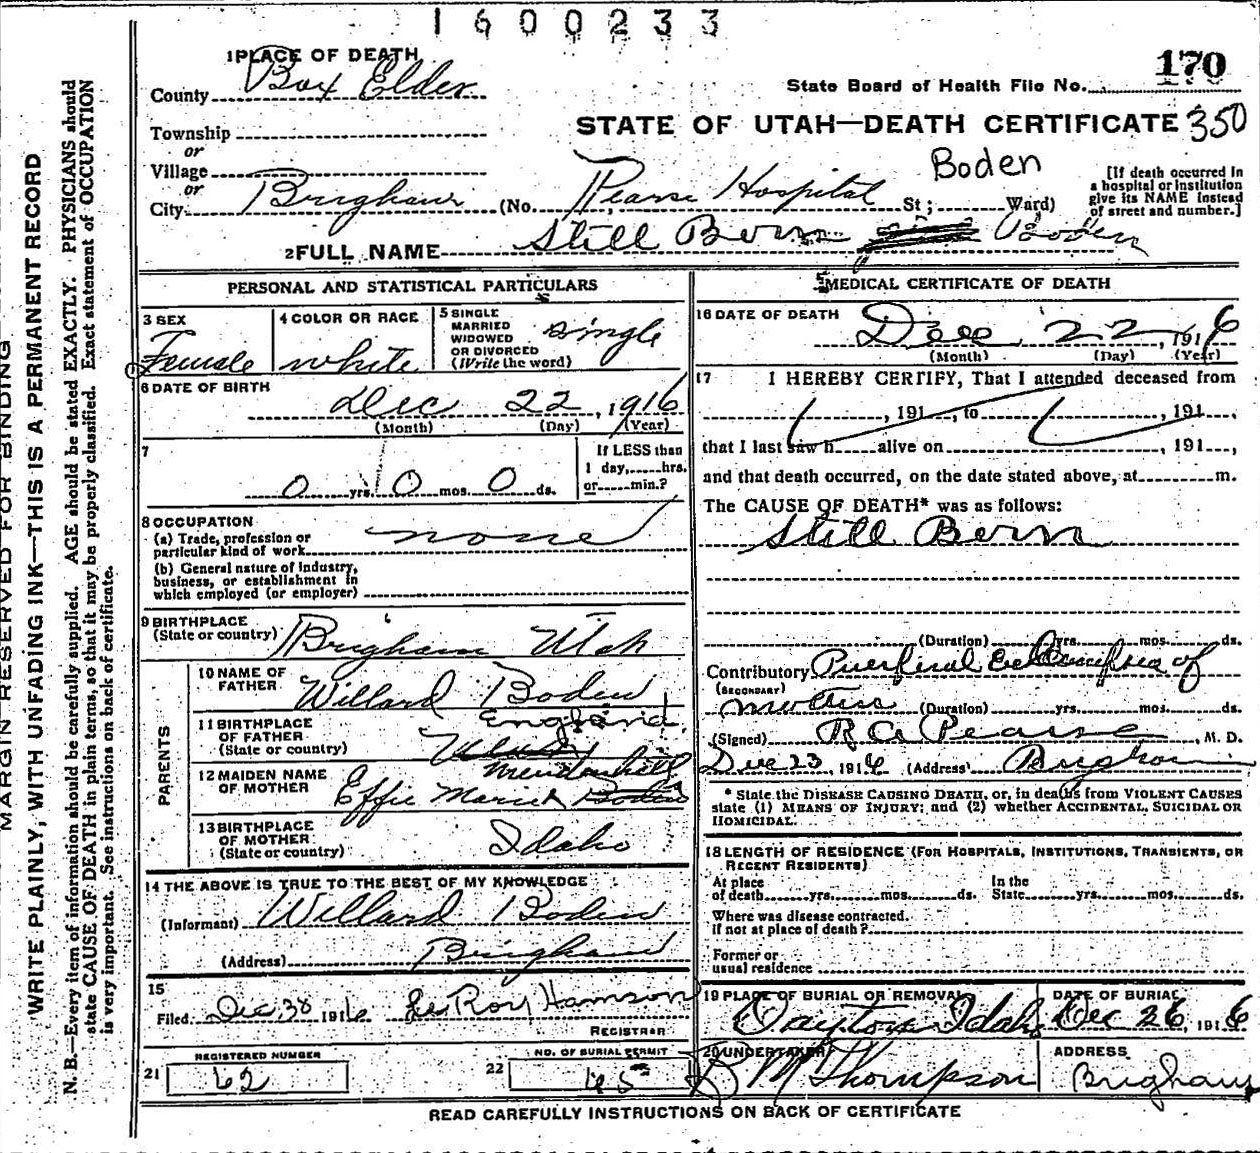 1600233
1 PLACE OF DEATH
170
County Box Elder
State Board of Health File No.
Township
STATE OF UTAH—DEATH CERTIFICATE 350
or
Village
Boden
[If death occurred in a hospital or institution give its NAME instead of street and number.]
or
City Brigham (No. Pearse Hospital St; Ward)
2 FULL NAME Still Born Boden
PERSONAL AND STATISTICAL PARTICULARS
3 SEX
Female
4 COLOR OR RACE
white
5 SINGLE
MARRIED
WIDOWED
OR DIVORCED
(Write the word)
single
6 DATE OF BIRTH
Dec 22, 1916
(Month) (Day) (Year)
7
0 yrs. 0 mos. 0 ds.
If LESS than
1 day, hrs.
or min.?
8 OCCUPATION
(a) Trade, profession or
particular kind of work
none
(b) General nature of industry,
business, or establishment in
which employed (or employer)
9 BIRTHPLACE
(State or country)
Brigham Utah
PARENTS
10 NAME OF
FATHER
Willard Boden
11 BIRTHPLACE
OF FATHER
(State or country)
England
12 MAIDEN NAME
OF MOTHER
Mendenhall
Effie Boden
13 BIRTHPLACE
OF MOTHER
(State or country)
Idaho
14 THE ABOVE IS TRUE TO THE BEST OF MY KNOWLEDGE
(Informant) Willard Boden
(Address) Brigham
15
Filed Dec 191 6 LeRoy
REGISTRAR
REGISTERED NUMBER
21 62
NO. OF BURIAL PERMIT
22
MEDICAL CERTIFICATE OF DEATH
16 DATE OF DEATH
Dec 22, 1916
(Month) (Day) (Year)
17 I HEREBY CERTIFY, That I attended deceased from
, 191 , to , 191 ,
that I last saw h alive on , 191 ,
and that death occurred, on the date stated above, at m.
The CAUSE OF DEATH* was as follows:
Still Born
(Duration) yrs. mos. ds.
Contributory Puerperal Eclampsia of
(SECONDARY)
mother (Duration) yrs. mos. ds.
(Signed) R A Pearse, M. D.
Dec 23, 1916 (Address) Brigham
* State the DISEASE CAUSING DEATH, or, in deaths from VIOLENT CAUSES
state (1) MEANS OF INJURY; and (2) whether ACCIDENTAL, SUICIDAL OR
HOMICIDAL.
18 LENGTH OF RESIDENCE (FOR HOSPITALS, INSTITUTIONS, TRANSIENTS, OR
RECENT RESIDENTS)
At place
of death yrs. mos. ds.
In the
State yrs. mos. ds.
Where was disease contracted,
if not at place of death?
Former or
usual residence
19 PLACE OF BURIAL OR REMOVAL
Dayton Idaho
DATE OF BURIAL
Dec 26, 1916
20 UNDERTAKER
R M Thompson
ADDRESS
Brigham
READ CAREFULLY INSTRUCTIONS ON BACK OF CERTIFICATE
MARGIN RESERVED FOR BINDING
WRITE PLAINLY, WITH UNFADING INK—THIS IS A PERMANENT RECORD
N. B.—Every item of information should be carefully supplied. AGE should be stated EXACTLY. PHYSICIANS should
state CAUSE OF DEATH in plain terms, so that it may be properly classified. Exact statement of OCCUPATION
is very important. See instructions on back of certificate.